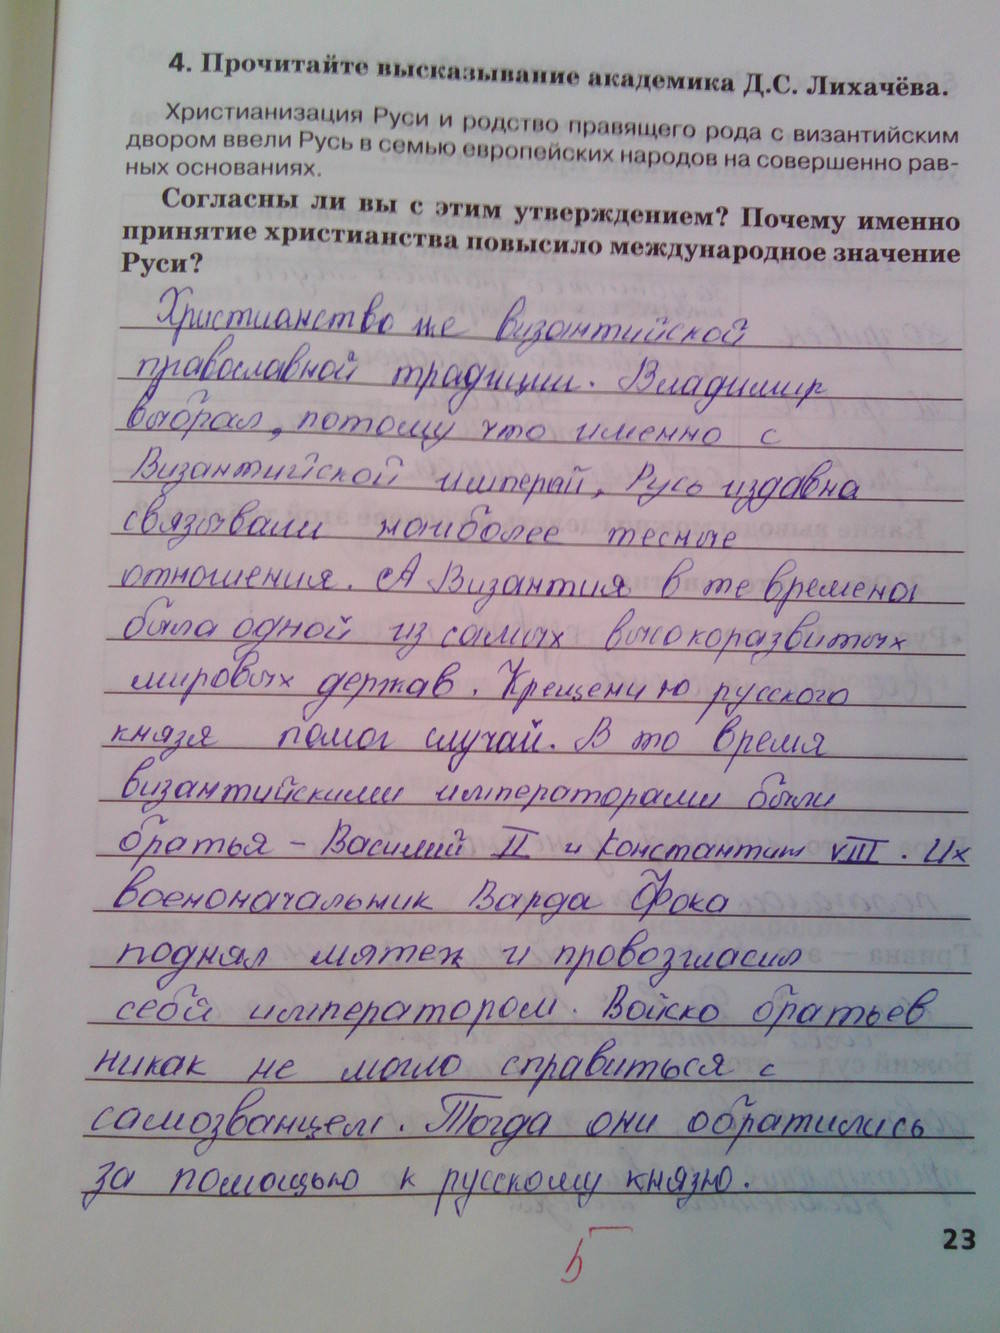 4. Прочитайте высказывание академика Д.С. Лихачёва.
Христианизация Руси и родство правящего рода с византийским
двором ввели Русь в семью европейских народов на совершенно рав-
ных основаниях.
Согласны ли вы с этим утверждением? Почему именно
принятие христианства повысило международное значение
Руси?
Христианство же византийской
православной традиции. Владимир
выбрал, потому что именно с
Византийской империй, Русь издавна
связывали наиболее тесные
отношения. А Византия в те времена
была одной из самых высокоразвитых
мировых держав. Крещению русского
князя помог случай. В то время
византийскими императорами были
братья - Василий II и Константин VIII. Их
военоначальник Варда Фока
поднял мятеж и провозгласил
себя императором. Войско братьев
никак не могло справиться с
самозванцем. Тогда они обратились
за помощью к русскому князю.
23
5